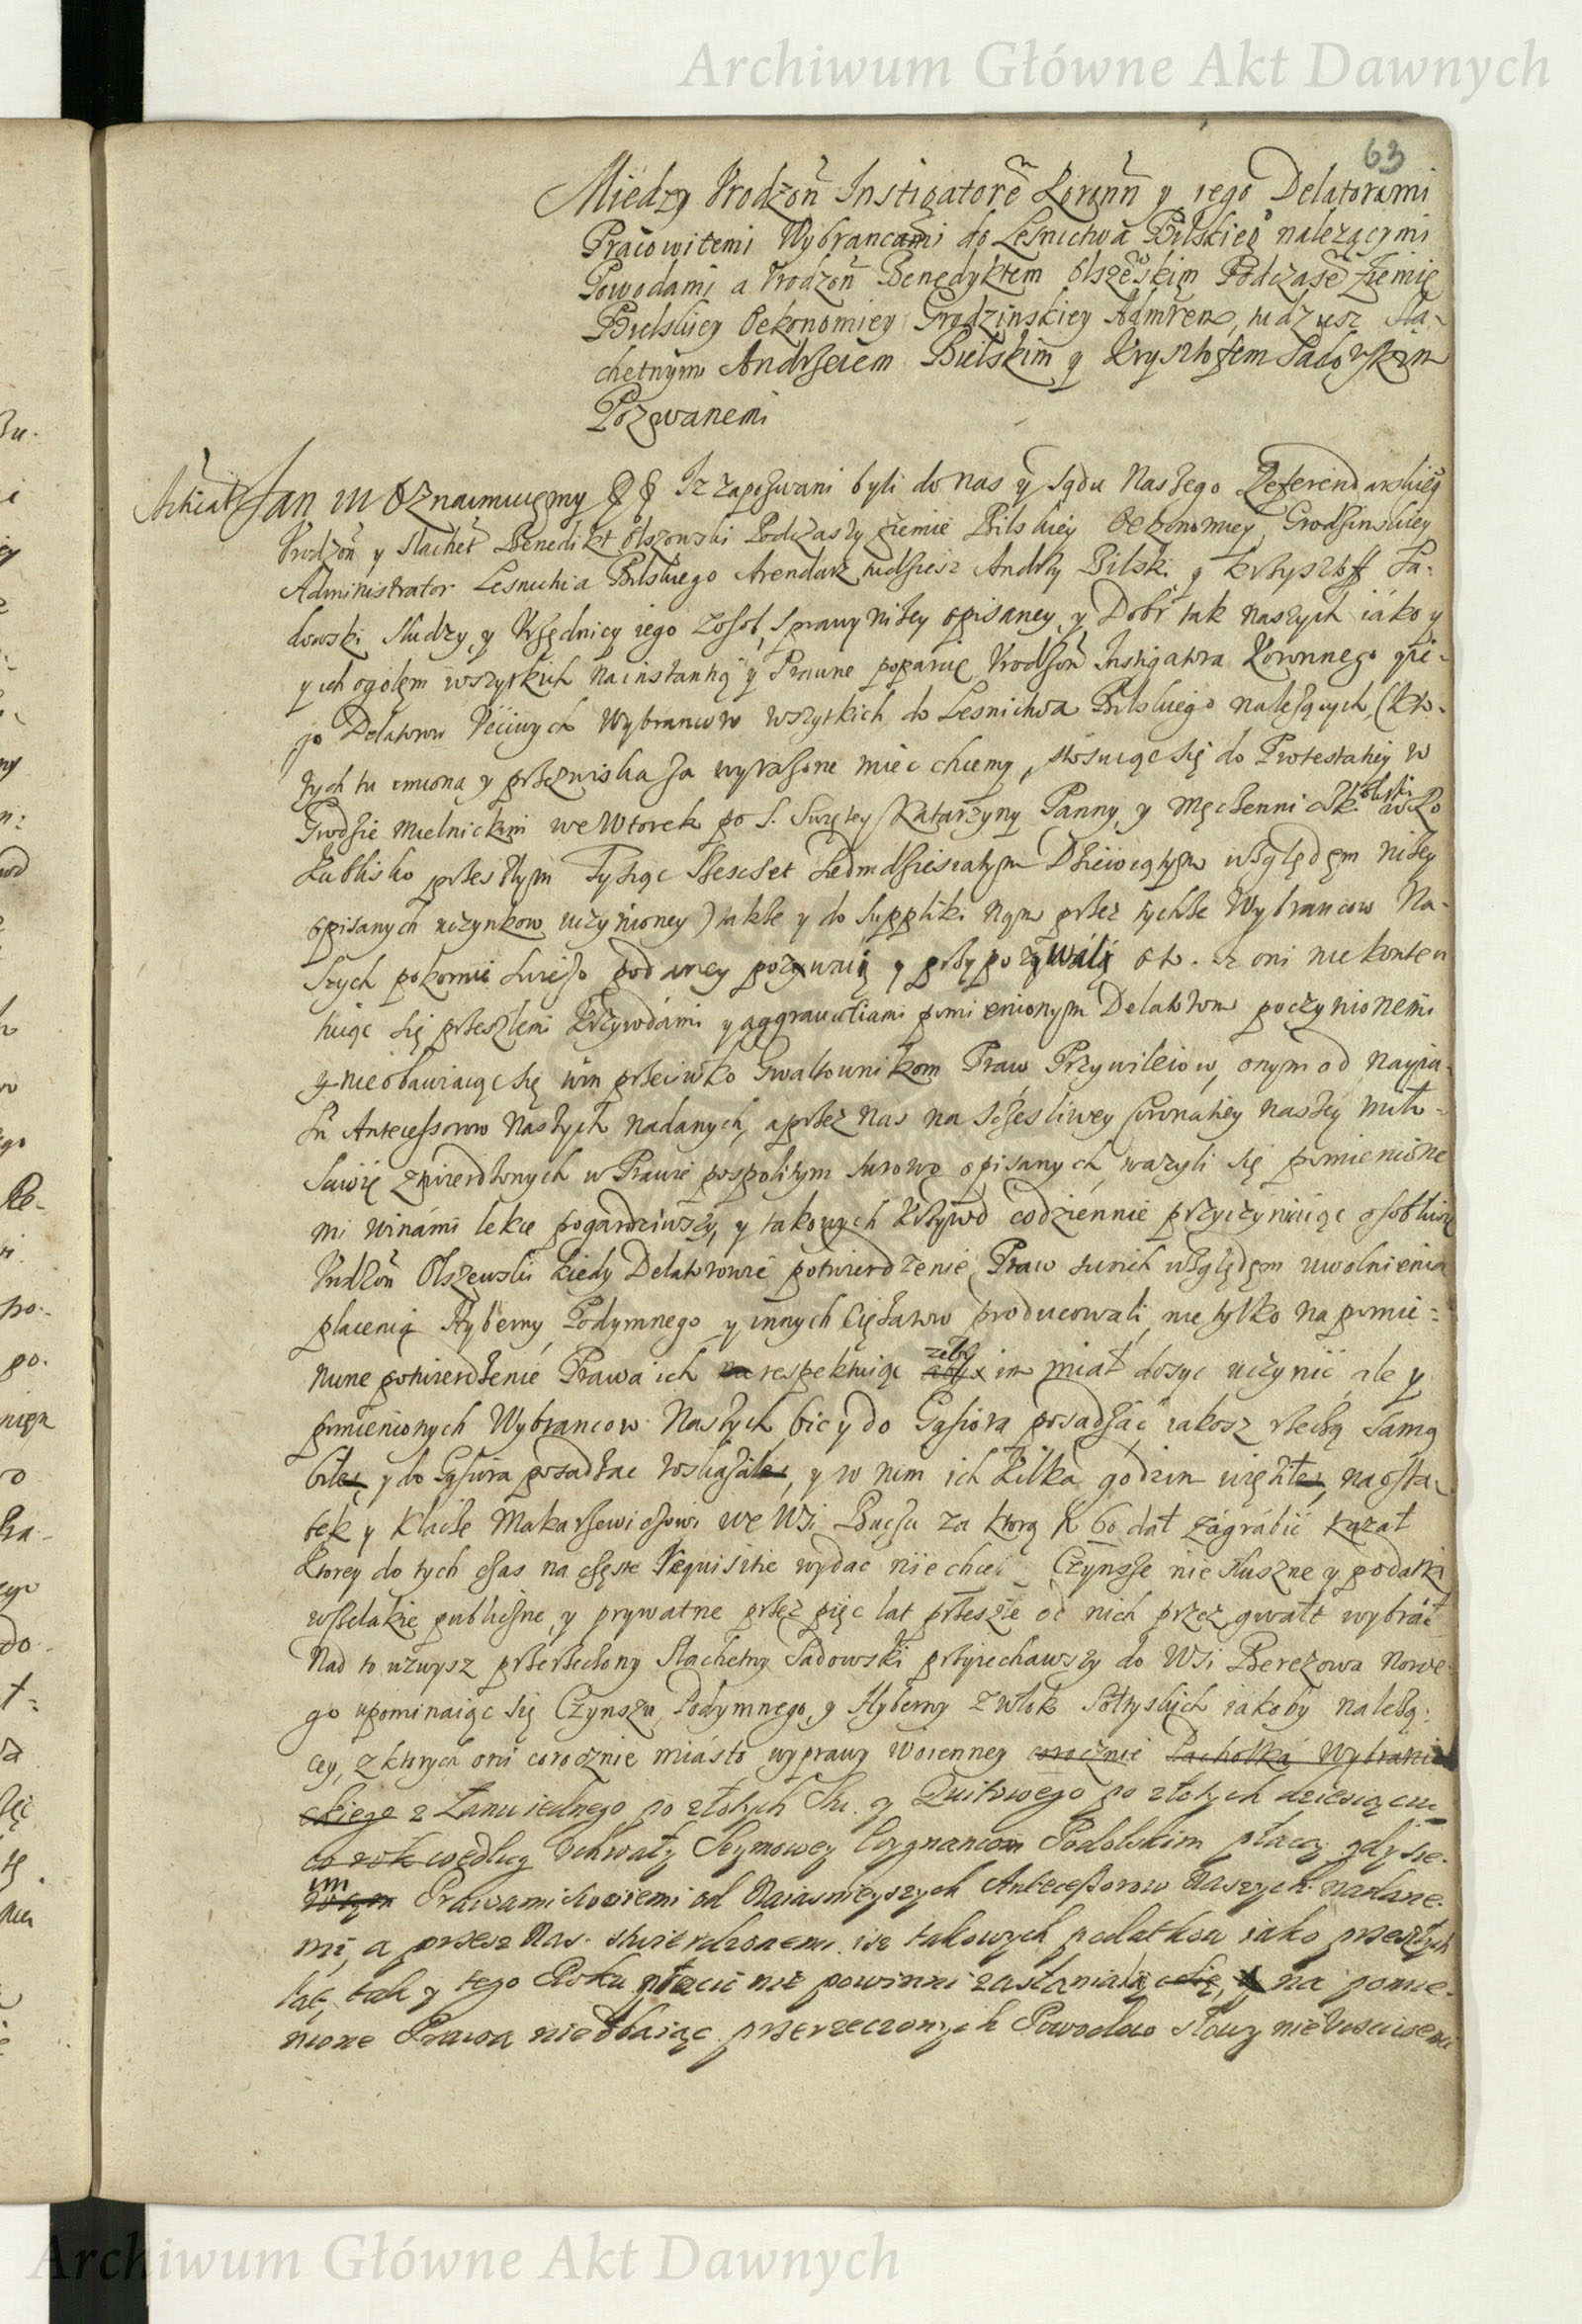 Archiwum Główne Akt Dawnych
63
Między Urodzoñ Instigatorẽ Koronñ y iego Delatorami
Pracowitemi Wybrancami do Lesnictwa Bilskieg° nalezącymi
Powodami a Urodzoñ Benedyktem Olszewskim Podczasẽ Ziemię
Bielskiey Oekonomiey Grodzinskiey Admrem, tudziesz Sla-
chetnym Andrzeiem Bielskim y Krysztofem Sadowskim
Pozwanemi
Jan III Oznaimuiemy Iz zapozwani byli do nas y Sądu Naszego Referendarskieg
Urodzoñ y Slachet Benedikt Olszowski Podczaszy Ziemie Bilskiey Oekonomiey Grodzinskiey
Administrator Lesnictwa Bilskiego Arendarz tudziesz Andrzy Bilski y Krzysztoff Sa-
dowski Sludzy, y Urzędnicy iego zosob, sprawy nizey opisaney y Dobr tak naszych iáko y
ych ogołem wszytkich na instantią y Prawne poparcie Urodzoñ Instigatora Koronnego y ie-
go Delatorow Uciwych Wybrancow wszytkich do Lesnictwa Bilskiego nalezących, (kto-
rych tu imiona y przezwiska za wyrazone miec chcemy, stosuiąc się do Protestatiey w
Grodzie Mielnickim we Wtorek po S. Swiętey Katarzyny Panny y Męczennicki w Ro
ku blisko przeszłym Tysiąc Szescset Siedmdziesiatym Dziewiątym względem nizey
opisanych uczynkow uczynioney) takze y do Suppliki Nam przez tychze Wybrancow Na-
szych pokornie swiezo podaney pozywaią y przypozywaią o to. Iz oni nie konten
tuiąc się przeszlemi Krzywdámi y aggrauatiami pomienionym Delatorom poczynionemi
y nie obawiaiąc się win przeciwko Gwaltownikom Praw Przywileiow, onym od nayia-
sñ Antecessorow Naszych nadanych, a przez Nas na Sczesliwey Coronatiey naszey Miło-
sciwie ztwierdzonych w Prawie pospolitym surowo opisanych, wazyli się pomienione
mi winámi lekce pogardziwszy, y takowych Krzywd codziennie przyczyniaiąc osobliwie
Urodzoñ Olszewski kiedy Delatorowie potwierdzenie Praw swoich względem uwolnienia
placenia Hyberny, Podymnego y innych Cięzarow producowali, nie tylko na pomie-
nione potwierdzenie Prawa ich na respektuiąc zeby im miał dosyc uczynić, ale y
pomienionych Wybrancow Naszych bic y do Gąsiora posadzáć iakosz rzeczą samą
bił, y do Gąsiora posadzac wskazał, y w nim ich kilka godzin więził, na osta-
tek y Klacze Makarzewiczowi we Wsi za ktorą fl 60 dał zágrábić kazał
Ktorey do tych czas na częste Requisitie wydac nie chce. Czynsze nie słuszne y podatki
wszelakie publiczne, y prywatne przez pięc lat przeszłe od nich przez gwałt wybrał
Nad to uzwysz przerzeczony Slachetny Sadowski przyiechawszy do Wsi Berezowa Nowe-
go upominaiąc się Czynszu, Podymnego, y Hyberny z włok Sołtyskich iakoby nalezą-
cey, z ktorych oni corocznie miásto wyprawy woienney corocznie Pachołka Wybranie
ckiego z Łanu iednego po złotych Stu. y Quitowego po złotych dziesiącm
co rok według Uchwały Seymowey Exgnancom Podolskim płacą, gdy sie.
im Prawami swoiemi od Naiasnieyszych Antecessorow Naszych nadane-
mi, a przez Nas. stwierdzonemi. isz takowych podatkow iako przeszłych
lat, tak y tego Roku płacić nie powinni zasłaniali, na pomie-
nione Prawa nie dbaiąc przerzeczonych Powodow słowy nieUczciwemi
Archiwum Główne Akt Dawnych